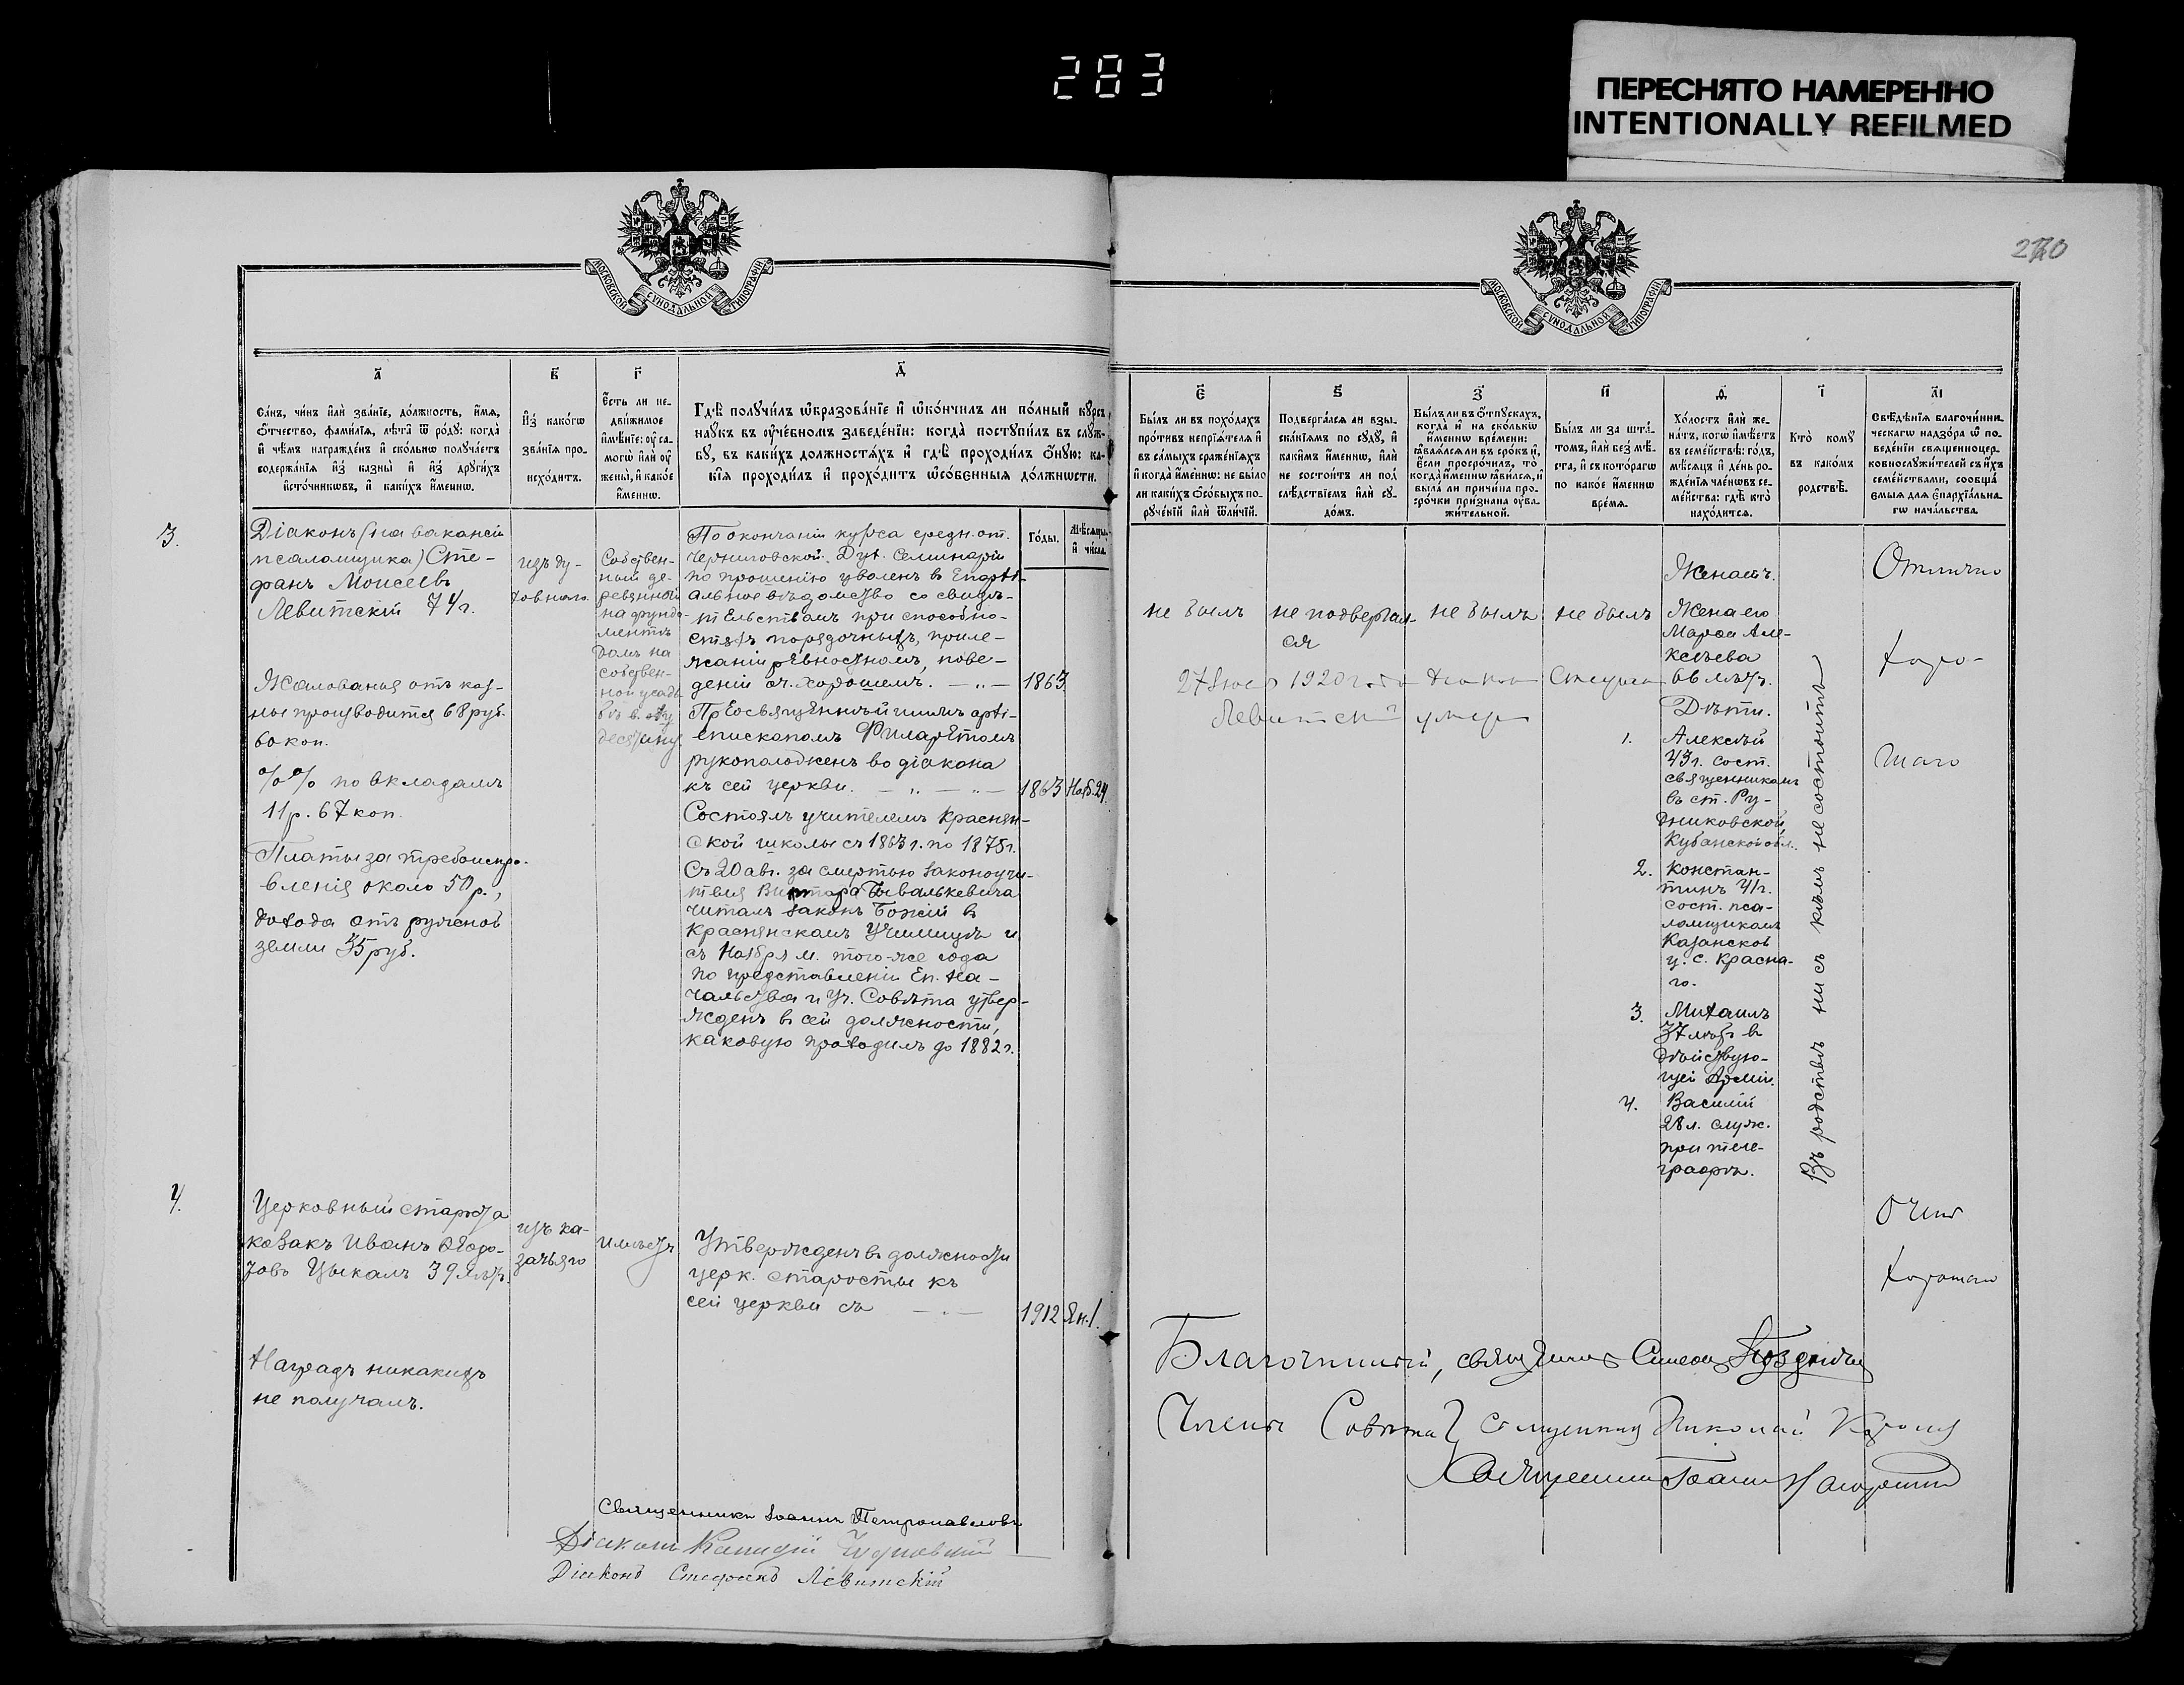 283
ПЕРЕСНЯТО НАМЕРЕННО
INTENTIONALLY REFILMED
270
МОСКОВСКОЙ СѴНОДАЛЬНОЙ ТИПОГРАФІИ
МОСКОВСКОЙ СѴНОДАЛЬНОЙ ТИПОГРАФІИ
а҃
Са́нъ, чи́нъ и҆лѝ зва́нїе, до́лжность, и҆́мѧ,
ѻ҆́тчество, фами́лїѧ, лѣ́та ѿ ро́дꙋ: когда̀
и҆ чѣ́мъ награжде́нъ и҆ ско́лькѡ полꙋча́етъ
содержа́нїѧ и҆з̾ казны̀ и҆ и҆з̾ дрꙋги́хъ
и҆сто́чникѡвъ, и҆ каки́хъ и҆́меннѡ.
в҃
И҆з̾ како́гѡ
зва́нїѧ про-
исхо́дитъ.
г҃
Е҆́сть ли не-
дви́жимое
и҆мѣ́нїе: ᲂу҆ са-
могѡ̀ и҆лѝ ᲂу҆
жены̀, и҆ како́е
и҆́меннѡ.
д҃
Гдѣ̀ полꙋчи́лъ ѡ҆бразова́нїе и҆ ѡ҆ко́нчилъ ли по́лный кꙋ́рсъ
наꙋ́къ въ ᲂу҆че́бномъ заведе́нїи: когда̀ постꙋпи́лъ въ слꙋ́ж-
бꙋ, въ каки́хъ должностѧ́хъ и҆ гдѣ̀ проходи́лъ ѻ҆́нꙋю: ка-
кі̑ѧ проходи́лъ и҆ прохо́дитъ ѡ҆со́бенныѧ до́лжности.
Го́ды.
Мѣ́сѧцы
и҆ чи́сла.
3.
Діаконъ (на вакансіи
псаломщика) Сте-
фанъ Моисеевъ
Левитскій 74 г.
Жалованья отъ каз-
ны производится 68 руб.
60 коп.
%% по вкладамъ
11 р. 67 коп.
Платы за требоиспра-
вленія около 50 р.,
дохода отъ ружной
земли 35 руб.
изъ ду-
ховнаго.
Собствен-
ный де-
ревянный
на фунда-
ментѣ
домъ на
собствен-
ной усадь
бѣ в.
десятину
По окончаніи курса средн. от.
Черниговской Дух. Семинаріи
по прошенію уволенъ въ Епархі-
альное вѣдомство со свидѣ-
тельствомъ при способно-
стяхъ порядочныхъ, приле-
жаніи ревностномъ, пове-
деніи оч. хорошемъ. — „ —
1863
Преосвященнѣйшимъ архі-
епископомъ Филаретомъ
рукоположенъ во діакона
къ сей церкви. — „ — „ —
1863 Нояб. 24.
Состоялъ учителемъ Краснян-
ской школы съ 1863 г. по 1875 г.
Съ 20 авг. за смертью законоучи-
теля Виктора Бывалькевича
читалъ законъ Божій въ
Краснянскомъ училищѣ и
съ Ноября м. того-же года
по представленіи Еп. На-
чальства и Уч. Совѣта утвер-
жденъ въ сей должности,
каковую проходилъ до 1882 г.
4.
Церковный староста
козакъ Иванъ Ѳедо-
ровъ Цыкалъ 39 лѣтъ.
Наградъ никакихъ
не получалъ.
изъ ка-
зачьяго
имѣетъ
Утвержденъ въ должности
церк. старосты къ
сей церкви съ — „ —
1912 Ян. 1.
Священникъ Іоаннъ Петропавловъ
Діаконъ
Діаконъ Стефанъ Левитскій
є҃
Бы́лъ ли въ похо́дахъ
про́тивъ непрїѧ́телѧ и҆
въ са́мыхъ сраже́нїѧхъ
и҆ когда̀ и҆́меннѡ: не бы́ло
ли каки́хъ ѻ҆со́быхъ по-
рꙋче́нїй и҆лѝ ѿли́чїй.
ѕ҃
Подверга́лсѧ ли взы-
ска́нїѧмъ по сꙋдꙋ̀, и҆
каки̑мъ и҆́меннѡ, и҆лѝ
не состои́тъ ли под̾
слѣ́дствїемъ и҆лѝ сꙋ-
до́мъ.
з҃
Бы́лъ ли въ ѻ҆́тпꙋскахъ,
когда̀ и҆ на ско́лькѡ
и҆́меннѡ вре́мени:
ꙗ҆влѧ́лсѧ ли въ сро́къ и҆,
е҆́сли просро́чилъ, то̀
когда̀ и҆́меннѡ ꙗ҆ви́лсѧ, и҆
была̀ ли причи́на про-
сро́чки при́знана ᲂу҆ва-
жи́тельной.
и҃
Бы́лъ ли за шта́-
томъ, и҆лѝ без̾ мѣ́-
ста, и҆ съ кото́рагѡ
по како́е и҆́меннѡ
вре́мѧ.
ѳ҃
Хо́лостъ и҆лѝ же-
на́тъ, когѡ̀ и҆мѣ́етъ
въ семе́йствѣ: го́дъ,
мѣ́сѧцъ и҆ де́нь ро-
жде́нїѧ чле́нѡвъ се-
ме́йства: гдѣ̀ кто̀
нахо́дитсѧ.
і҃
Кто̀ комꙋ̀
въ како́мъ
родствѣ̀.
а҃і
Свѣ́дѣнїѧ благочи́нни-
ческагѡ надзо́ра ѡ҆ по-
веде́нїи свѧщенноцер-
ковнослꙋжи́телей съ и҆́хъ
семе́йствами, сообща́-
емыѧ длѧ є҆парxїа́льна-
гѡ нача́льства.
не былъ
не подвергал-
ся
не былъ
не былъ
27 1920 года діаконъ Стефанъ
Левитскій умеръ
Женатъ.
Жена его
Марѳа Але-
ксѣева
66 лѣтъ.
Дѣти.
1. Алексѣй
43 г. сост.
священникомъ
въ ст. Ру-
дниковской,
Кубанской обл.
2. Констан-
тинъ 41 г.
сост. пса-
ломщикомъ
Казанской
ц. с. Красна-
го.
3. Михаилъ
37 лѣтъ въ
дѣйствую-
щей Арміи.
4. Василій
28 л. служ.
при теле-
графѣ.
Въ родствѣ ни съ кѣмъ не состоитъ
Отлично
Хоро-
шаго
Очень
хорошаго
Благочинный, священникъ Симеонъ
Члены Совѣта священникъ Николай
Священникъ Іоаннъ